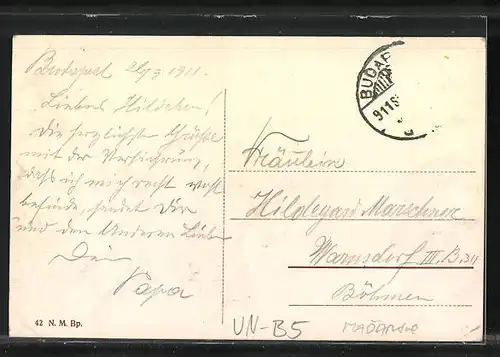 Budapest 21/3 1911.
Liebes Hildchen!
Die herzlichsten Grüße
mit der Versicherung,
dass ich mich recht wohl
befinde, sendet Dir
und den Anderen Lieben
Dein
Papa
42 N. M. Bp.
BUDAP
911
Fräulein
Hildegard Marschner
Warnsdorf III. B.
Böhmen
VN-B5
MAĎARSKO